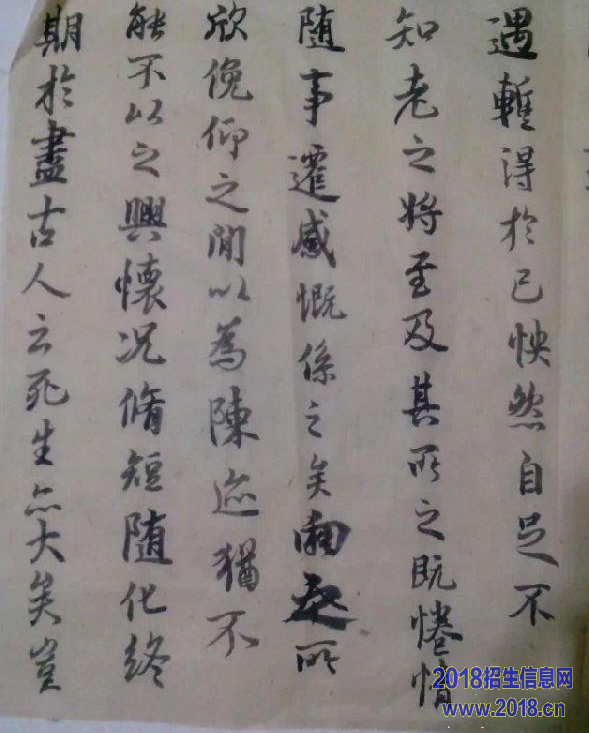 遇蹔得於己怏然自足不
知老之將至及其所之既惓情
随事遷感慨係之矣向之所
欣俛仰之閒以為陳迹猶不
能不以之興懷况脩短随化終
期於盡古人云死生亦大矣豈
2018招生信息网
www.2018.cn